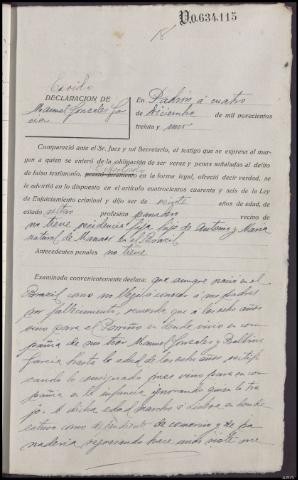 V0.634.115
18
Exido
DECLARACION DE
Manuel Gonzalez Garcia
En Padrón á cuatro
de Diciembre de mil novecientos
treinta y uno
Compareció ante el Sr. Juez y mi Secretario, el testigo que se expresa al margen
a quien se enteró de la obligación de ser veraz y penas señaladas al delito
de falso testimonio, en la forma legal, ofreció decir verdad, se
le advirtió en lo dispuesto en el artículo cuatrocientos cuarenta y seis de la Ley
de Enjuiciamiento criminal y dijo ser de veinte años de edad,
estado soltero profesión panadero vecino de
no tiene residencia fija, hijo de Antonio y María
natural de Manaos en el Brasil
Antecedentes penales no tiene
Examinado convenientemente declara: que aunque nació en el
Brasil como no llegó a conocer a sus padres
por fallecimiento, recuerda que a los ocho años
vino para el Porriño en donde vivió en compañia
de sus tios Manuel Gonzalez y
Garcia hasta la edad de los ocho años
lo consignado pues vino para en compañia
en la infancia ignorando quien lo trajo.
A dicha edad marchó a Lisboa en donde
estuvo como dependiente de comercio y de panaderia
regresando hace unos siete me